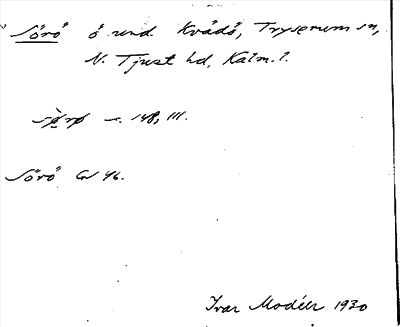 Sörö ö und. Kvädö, Tryserum sn,
N. Tjust hd, Kalm. l.
s. 148, III.
Sörö GS 46.
Ivar Modéer 1930